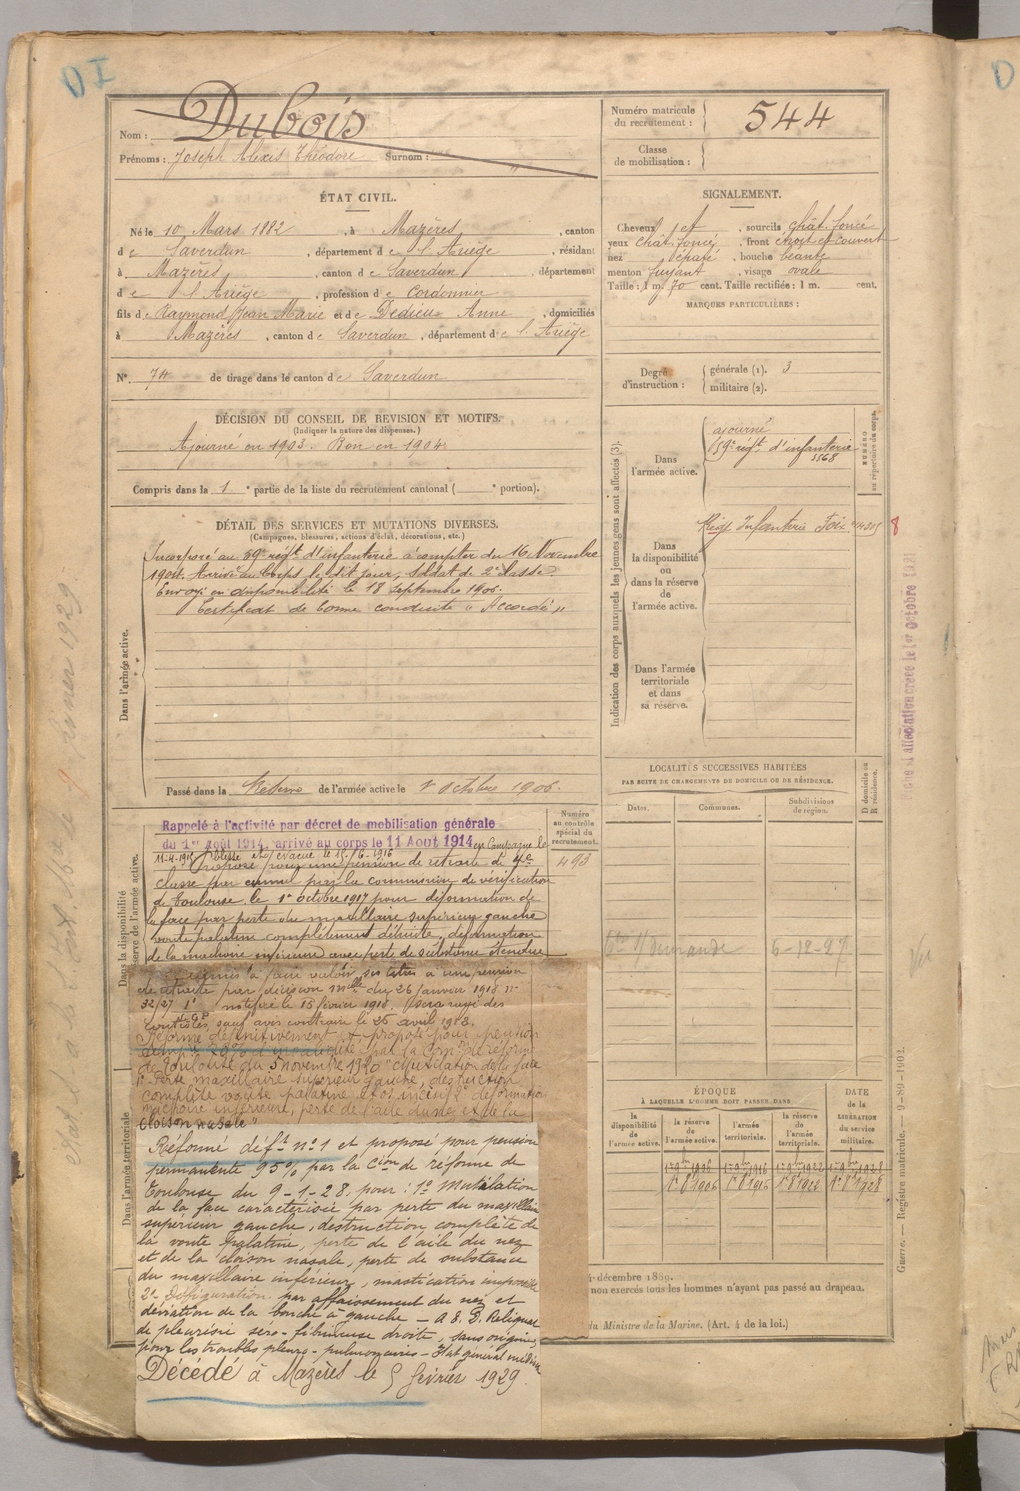 DI
Nom : Dubois
Prénoms : Joseph Alexis Théodore Surnom : "
Numéro matricule du recrutement : 544
Classe de mobilisation :
ÉTAT CIVIL.
Né le 10 Mars 1882, à Mazères, canton
de Saverdun, département de l'Ariège, résidant
à Mazères, canton de Saverdun, département
de l'Ariège, profession de Cordonnier
fils de Raymond Jean Marie et de Dedieu Anne, domiciliés
à Mazères, canton de Saverdun, département de l'Ariège
N° 74 de tirage dans le canton de Saverdun
SIGNALEMENT.
Cheveux et, sourcils chât. foncé
yeux chât. foncé, front étroit et couvert
nez épaté, bouche béante
menton fuyant, visage ovale
Taille : 1 m. 70 cent. Taille rectifiée : 1 m. cent.
MARQUES PARTICULIÈRES :
Degré d'instruction : générale (1). 3
militaire (2).
DÉCISION DU CONSEIL DE REVISION ET MOTIFS.
(Indiquer la nature des dispenses.)
Ajourné en 1903. Bon en 1904.
Compris dans la 1e partie de la liste du recrutement cantonal ( e portion).
DÉTAIL DES SERVICES ET MUTATIONS DIVERSES.
(Campagnes, blessures, actions d'éclat, décorations, etc.)
Dans l'armée active.
Incorporé au 59e régt. d'infanterie à compter du 16 Novembre
1904. Arrivé au Corps le dit jour, soldat de 2e classe.
Envoyé en disponibilité le 18 septembre 1906.
Certificat de bonne conduite "Accordé"
Passé dans la Réserve de l'armée active le 1er Octobre 1906.
Indication des corps auxquels les jeunes gens sont affectés (3).
NUMÉRO au répertoire du corps.
Dans l'armée active.
ajourné
59e régt. d'infanterie
5568
Dans la disponibilité ou dans la réserve de l'armée active.
Régt Infanterie Foix
8
Dans l'armée territoriale et dans sa réserve.
LOCALITÉS SUCCESSIVES HABITÉES
PAR SUITE DE CHANGEMENTS DE DOMICILE OU DE RÉSIDENCE.
Dates. Communes. Subdivisions de région. D domicile ou R résidence.
demande 6-12-27
Vu
Numéro au contrôle spécial du recrutement.
493
Dans la disponibilité
réserve de l'armée active.
Rappelé à l'activité par décret de mobilisation générale
du 1er Août 1914, arrivé au corps le 11 Août 1914 en Campagne le
11-4-1915 Blessé et évacué le 15-6-1916
Proposé pour une pension de retraite de 4e
classe par la commission de vérification
de Toulouse le 1er octobre 1917 pour déformation de
la face par perte du maxillaire supérieur gauche
voute palatine complètement détruite, déformation
de la machoire inférieure avec perte de substance étendue
Admis à faire valoir ses titres à une pension
de retraite par décision mlle du 26 janvier 1918 n°
32/27 notifié le 15 février 1918. Sera rayé des
contrôles sauf avis contraire le 25 avril 1918.
Réformé définitivement et proposé pour pension
par la Comon de réforme
de Toulouse du 5 novembre 1920 "Mutilation de la face
1° Perte maxillaire supérieur gauche, destruction
complète voute palatine et os incisif 2° déformation
machoire inférieure, perte de l'aile du nez et de la
cloison nasale"
Dans l'armée territoriale
Réformé déft. n° 1 et proposé pour pension
permanente 95% par la Cion de réforme de
Toulouse du 9-1-28, pour : 1° Mutilation
de la face caractérisée par perte du maxillaire
supérieur gauche, destruction complète de
la voute palatine, perte de l'aile du nez
et de la cloison nasale, perte de substance
du maxillaire inférieur, mastication impossible
2° Défiguration par affaissement du nez et
déviation de la bouche à gauche — A. E. D. Reliquat
de pleurésie séro-fibrineuse droite, sans origine
pour les troubles pleuro-pulmonaires — Etat général médiocre
Décédé à Mazères le 5 février 1929
ÉPOQUE
À LAQUELLE L'HOMME DOIT PASSER DANS
la disponibilité de l'armée active. la réserve de l'armée active. l'armée territoriale. la réserve de l'armée territoriale. DATE de la LIBÉRATION du service militaire.
1er 9bre 1906 1er 9bre 1916 1er 9bre 1922 1er 9bre 1928
1er 8 1906 1er 8 1916 1er 8 1922 1er 8 1928
décembre 1889.
non exercés tous les hommes n'ayant pas passé au drapeau.
du Ministre de la Marine. (Art. 4 de la loi.)
Guerre. — Registre matricule. — 9-89-1902.